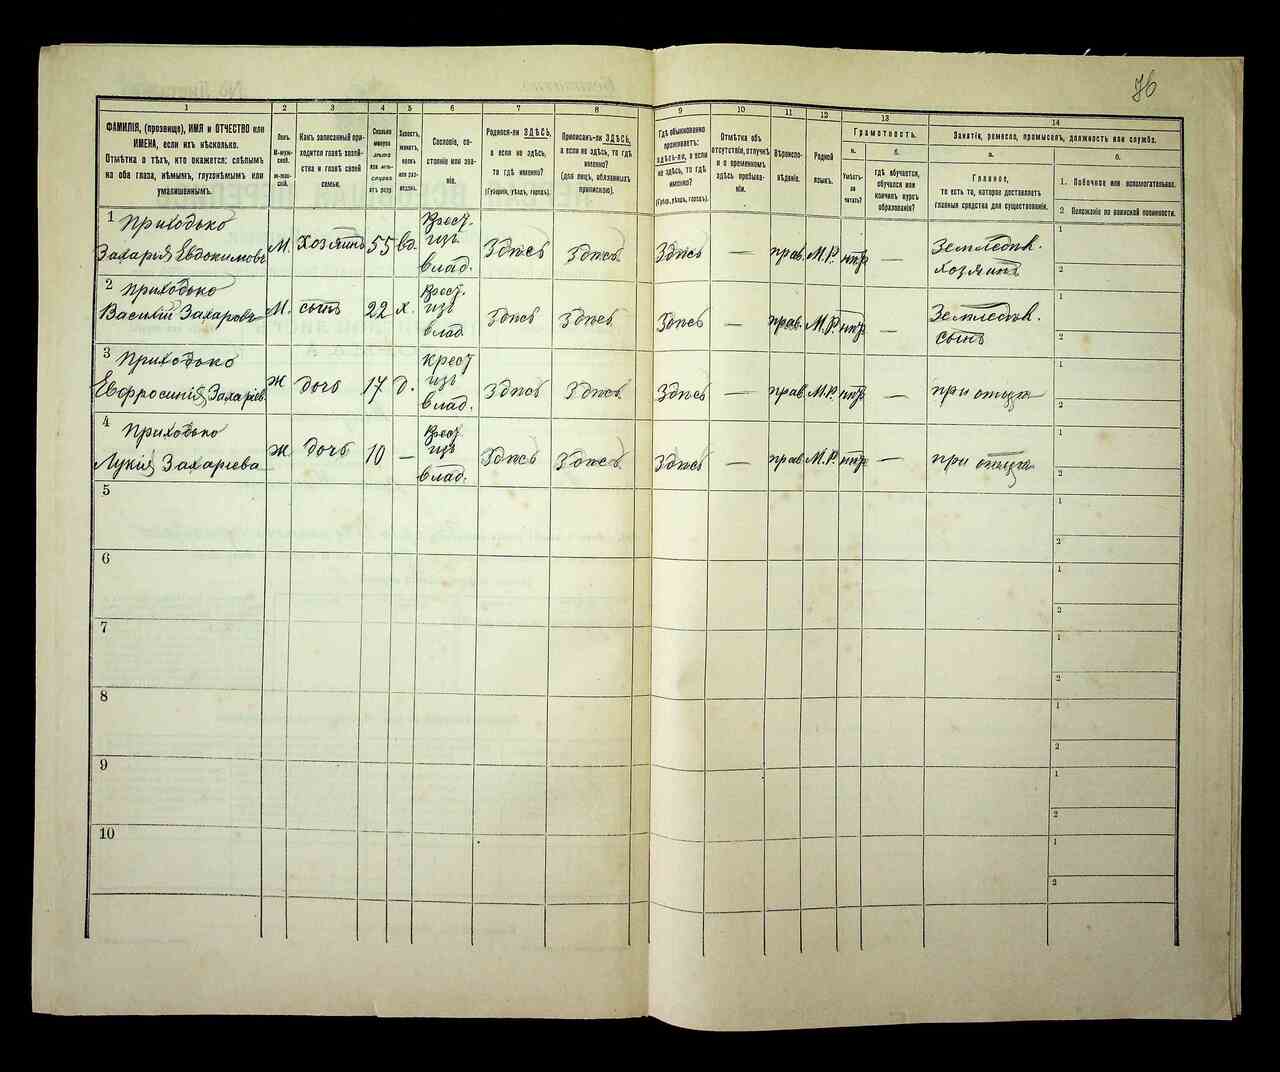 76
1 2 3 4 5 6 7 8 9 10 11 12 13 14
ФАМИЛІЯ, (прозвище), ИМЯ и ОТЧЕСТВО или
ИМЕНА, если ихъ нѣсколько.
Отмѣтка о тѣхъ, кто окажется: слѣпымъ
на оба глаза, нѣмымъ, глухонѣмымъ или
умалишеннымъ.
Полъ.
М-муж-
ской.
Ж-жен-
скій.
Какъ записанный при-
ходится главѣ хозяй-
ства и главѣ своей
семьи.
Сколько
минуло
лѣтъ
или мѣс-
яцевъ
отъ роду
Холостъ,
женатъ,
вдовъ
или раз-
веденъ.
Сословіе, со-
стояніе или зва-
ніе.
Родился-ли ЗДѢСЬ,
а если не здѣсь,
то гдѣ именно?
(Губернія, уѣздъ, городъ).
Приписанъ-ли ЗДѢСЬ,
а если не здѣсь, то гдѣ
именно?
(для лицъ, обязанныхъ
припискою).
Гдѣ обыкновенно
проживаетъ:
здѣсь-ли, а если
не здѣсь, то гдѣ
именно?
(Губер., уѣздъ, городъ).
Отмѣтка объ
отсутствіи, отлучкѣ
и о временномъ
здѣсь пребыва-
ніи.
Вѣроиспо-
вѣданіе.
Родной
языкъ.
Грамотность.
а. б.
Умѣетъ-
ли
читать?
гдѣ обучается,
обучался или
кончилъ курсъ
образованія?
Занятіе, ремесло, промыселъ, должность или служба.
а. б.
Главное,
то есть то, которое доставляетъ
главныя средства для существованія.
1. Побочное или вспомогательное.
2 Положеніе по воинской повинности.
1 Приходько
Захарія Евдокимовъ М. Хозяинъ 55 вд. Крест. изъ влад. Здѣсь Здѣсь Здѣсь — прав. М.Р. нѣтъ — Земледѣл. хозяинъ 1 2
2 Приходько
Василій Захаровъ М. сынъ 22 х. Крест. изъ влад. Здѣсь Здѣсь Здѣсь — прав. М.Р. нѣтъ — Земледѣл. сынъ 1 2
3 Приходько
Евфросинія Захаріев. Ж дочь 17 д. Крест изъ влад. Здѣсь Здѣсь Здѣсь — прав. М.Р. нѣтъ — при отцѣ 1 2
4 Приходько
Лукія Захаріева Ж дочь 10 — Крест. изъ влад. Здѣсь Здѣсь Здѣсь — прав. М.Р. нѣтъ — при отцѣ 1 2
5 1 2
6 1 2
7 1 2
8 1 2
9 1 2
10 1 2